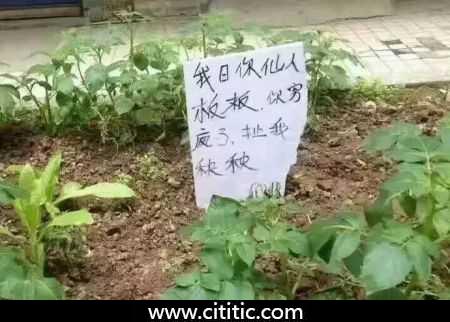 我日你仙人
板板.你穷
疯了,扯我
秧秧
www.cititic.com